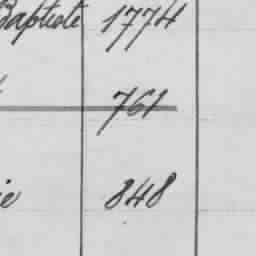 Baptiste 1774
761
ie 848